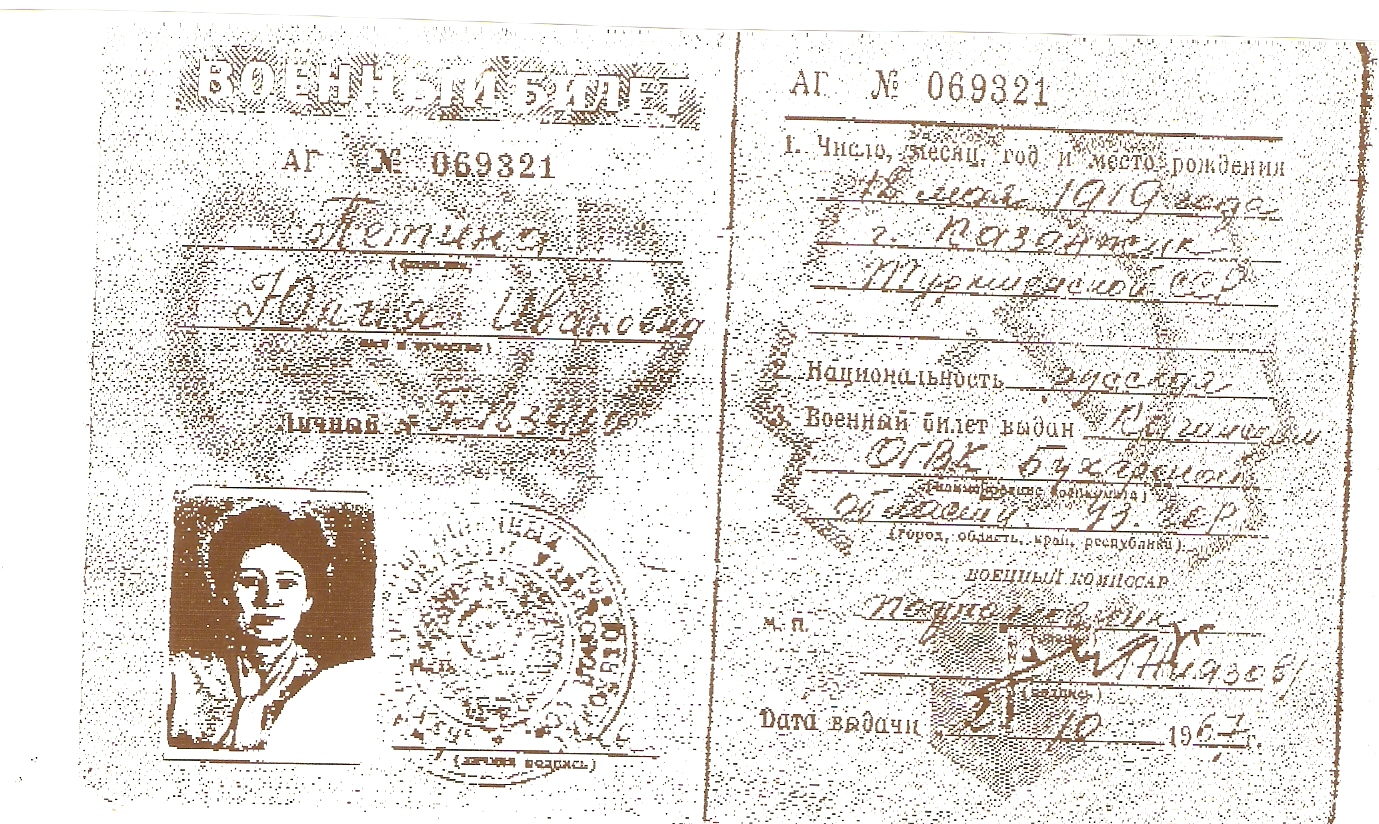 ВОЕННЫЙ БИЛЕТ
АГ № 069321
Петина
(фамилия)
Юлия Ивановна
(имя и отчество)
Личный №
(личная подпись)
АГ № 069321
1. Число, месяц, год и место рождения
18 мая 1919 года
г. Казанджик
Туркменской ССР
2. Национальность русская
3. Военный билет выдан Каганским
ОГВК Бухарской
(наименование военкомата)
области Уз. ССР
(город, область, край, республика)
ВОЕННЫЙ КОМИССАР
М. П. подполковник
/Ниязов/
(подпись)
Дата выдачи 10 1967 г.